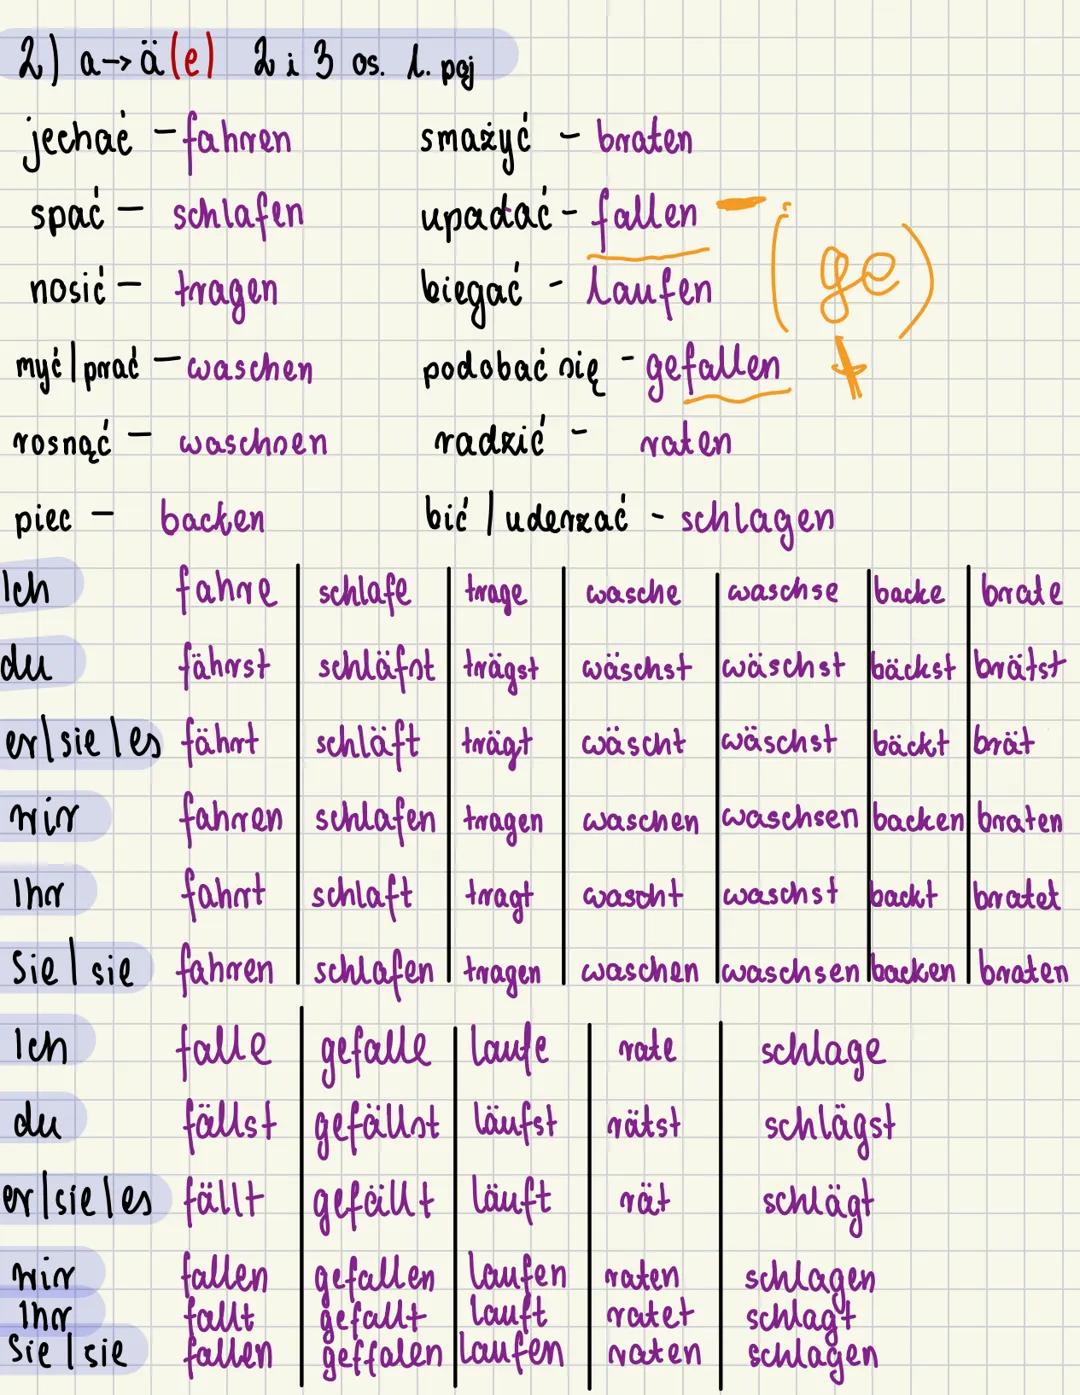 2) a→ä(e) 2 i 3 os. l. poj
jechać - fahren smażyć - braten
spać - schlafen upadać - fallen -
nosić - tragen biegać - laufen (ge)
myć|prać - waschen podobać się - gefallen +
rosnąć - waschsen radzić - raten
piec - backen bić | uderzać - schlagen
Ich fahre schlafe trage wasche waschse backe brate
du fährst schläfst trägst wäschst wäschst bäckst brätst
er|sie|es fährt schläft trägt wäscht wäschst bäckt brät
wir fahren schlafen tragen waschen waschsen backen braten
Ihr fahrt schlaft tragt wascht waschst backt bratet
Sie|sie fahren schlafen tragen waschen waschsen backen braten
Ich falle gefalle laufe rate schlage
du fällst gefällst läufst rätst schlägst
er|sie|es fällt gefällt läuft rät schlägt
wir fallen gefallen laufen raten schlagen
Ihr fallt gefallt lauft ratet schlagt
Sie|sie fallen geffalen laufen raten schlagen